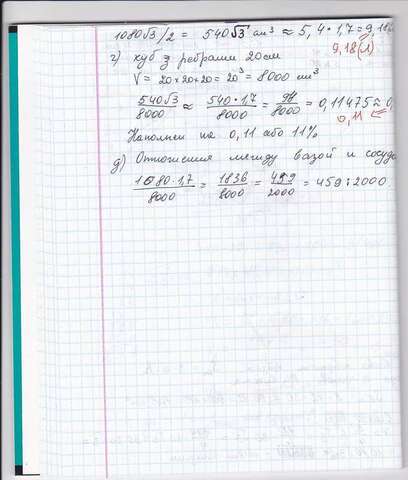 1080√3/2 = 540√3 см³ ≈ 5,4·1,7 = 9,18
9,18(л)
г) куб з ребрами 20см
V = 20×20×20 = 20³ = 8000 cm³
540√3/8000 ≈ 540·1,7/8000 = /8000 = 0,11475 ≈ 0,
0,11
Наполнен на 0,11 або 11%
д) Отношения между вазой и сосудо
1080·1,7/8000 = 1836/8000 = 459/2000 = 459:2000